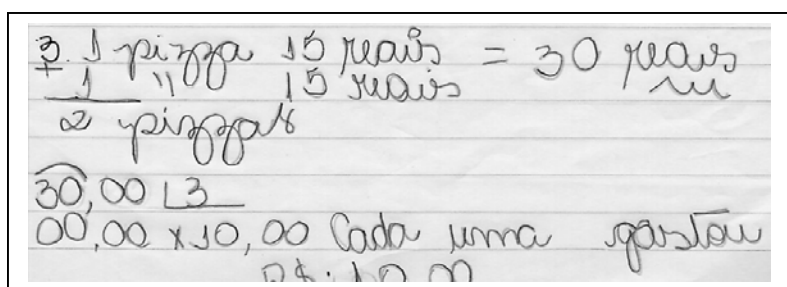 3. 1 pizza 15 reais = 30 reais
+ 1 " 15 reais
2 pizzas
30,00 | 3
00,00 x 10,00 Cada uma gastou
R$: 10,00